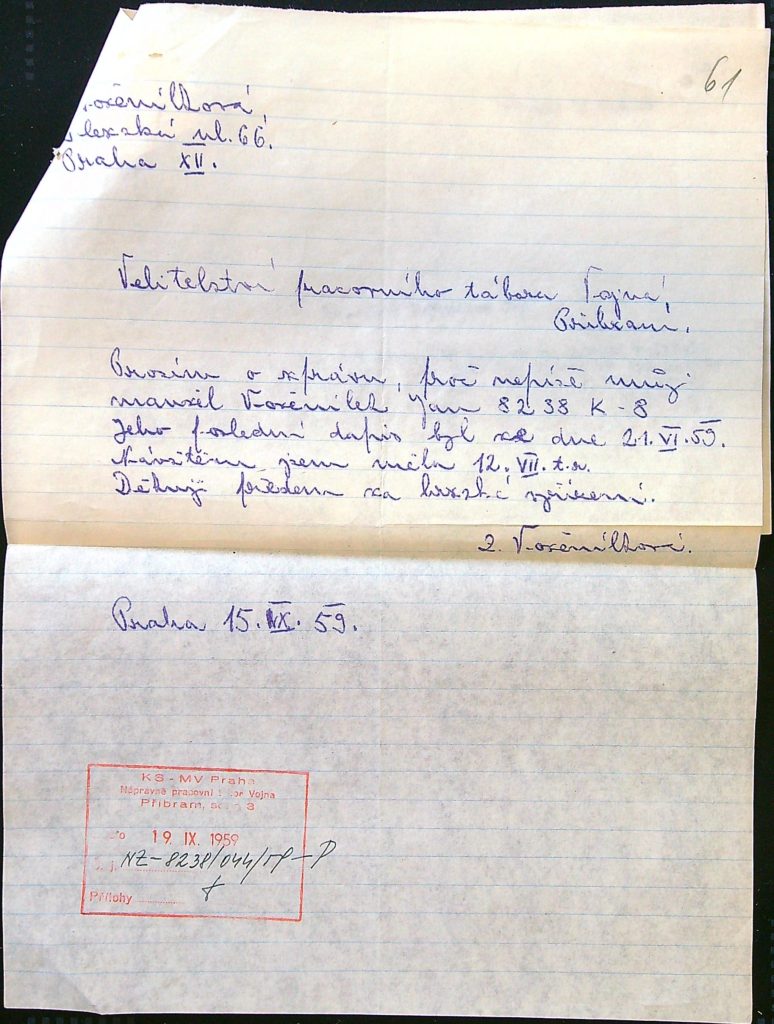 61
ožěnílková,
lezská ul. 66.
Praha XII.
Velitelství pracovního tábora Vojna,
Příbrami.
Prosím o zprávu, proč nepíše můj
manžel Vožěnílek Jan 8238 K-8
Jeho poslední dopis byl ze dne 21.VI.59.
Návštěvu jsem měla 12.VII.t.r.
Děkuji předem za brzské vyřízení.
Z. Vožěnílková.
Praha 15.IX.59.
KS - MV Praha
Nápravně pracovní bor Vojna
Příbram, 3
19. IX. 1959
NZ-8238/044/TP-P
Přílohy